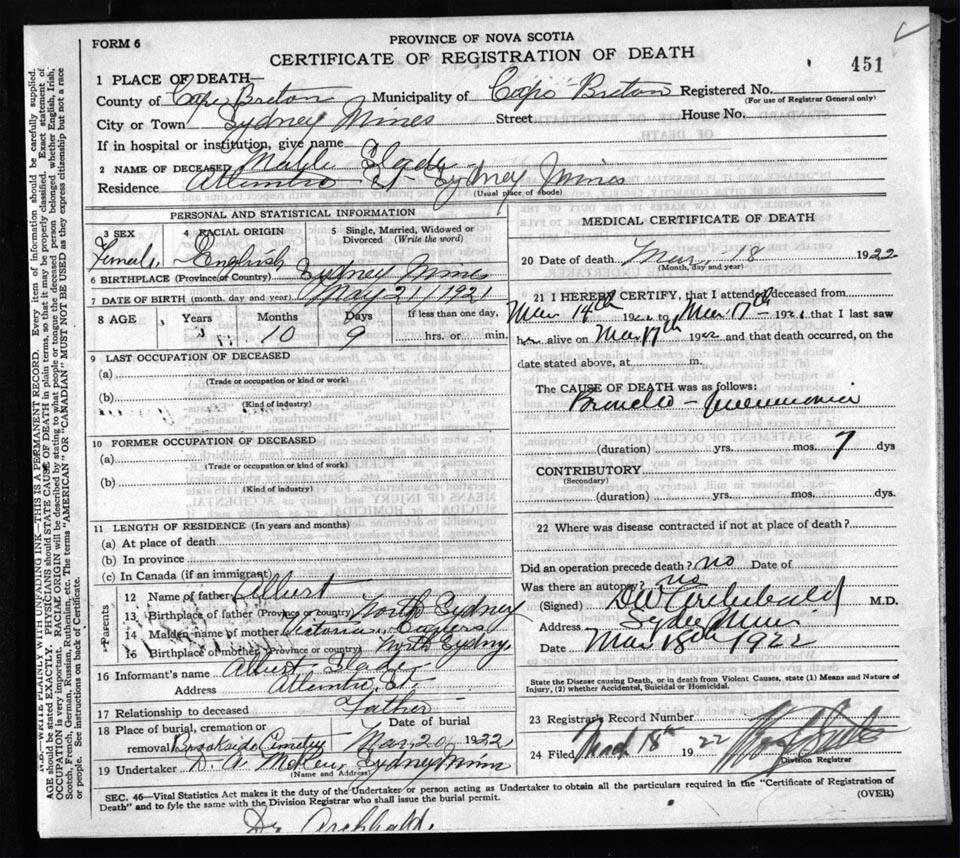 FORM 6
PROVINCE OF NOVA SCOTIA
CERTIFICATE OF REGISTRATION OF DEATH
451
1 PLACE OF DEATH—
County of Cape Breton Municipality of Cape Breton Registered No.
(For use of Registrar General only)
City or Town Sydney Mines Street House No.
If in hospital or institution, give name
2 NAME OF DECEASED Slade
Residence Atlantic St Sydney Mines
(Usual place of abode)
PERSONAL AND STATISTICAL INFORMATION
3 SEX 4 RACIAL ORIGIN 5 Single, Married, Widowed or Divorced (Write the word)
Female English
6 BIRTHPLACE (Province or Country) Sydney Mines
7 DATE OF BIRTH (month, day and year) May 21/1921
8 AGE Years Months Days If less than one day,
10 9 hrs. or min.
9 LAST OCCUPATION OF DECEASED
(a)
(Trade or occupation or kind or work)
(b)
(Kind of industry)
10 FORMER OCCUPATION OF DECEASED
(a)
(Trade or occupation or kind of work)
(b)
(Kind of industry)
11 LENGTH OF RESIDENCE (In years and months)
(a) At place of death
(b) In province
(c) In Canada (if an immigrant)
Parents
12 Name of father Albert
13 Birthplace of father (Province or country) North Sydney
14 Maiden name of mother
15 Birthplace of mother (Province or country) North Sydney
16 Informant's name Albert Slade
Address Atlantic St.
17 Relationship to deceased Father
18 Place of burial, cremation or Date of burial
removal Brookside Cemetery Mar 20 1922
19 Undertaker D. A. Sydney Mines
(Name and Address)
MEDICAL CERTIFICATE OF DEATH
20 Date of death Mar 18 1922
(Month, day and year)
21 I HEREBY CERTIFY, that I attended deceased from
Mar 14th 192 to Mar 17th 192 that I last saw
h alive on Mar 17th 1922 and that death occurred, on the
date stated above, at m.
The CAUSE OF DEATH was as follows:
Broncho-pneumonia
(duration) yrs. mos. 7 dys
CONTRIBUTORY
(Secondary)
(duration) yrs. mos. dys.
22 Where was disease contracted if not at place of death?
Did an operation precede death? no Date of
Was there an autopsy? no
(Signed) D W Archibald M.D.
Address Sydney Mines
Date Mar 18th 1922
State the Disease causing Death, or in death from Violent Causes, state (1) Means and Nature of
Injury, (2) whether Accidental, Suicidal or Homicidal.
23 Registrar's Record Number
24 Filed March 18th 1922
Division Registrar
SEC. 46—Vital Statistics Act makes it the duty of the Undertaker or person acting as Undertaker to obtain all the particulars required in the "Certificate of Registration of
Death" and to fyle the same with the Division Registrar who shall issue the burial permit. (OVER)
Dr Archibald.
N.B.—WRITE PLAINLY WITH UNFADING INK—THIS IS A PERMANENT RECORD. Every item of information should be carefully supplied.
AGE should be stated EXACTLY. PHYSICIANS should STATE CAUSE OF DEATH in plain terms, so that it may be properly classified. Exact statement of
OCCUPATION is very important. RACIAL ORIGIN will be described by stating to what people or tongue the deceased person belonged whether English, Irish,
Scotch, French, German, Russian, Ruthenian, etc. The terms "AMERICAN" OR "CANADIAN" MUST NOT BE USED as they express citizenship but not a race
or people. See instructions on back of Certificate.